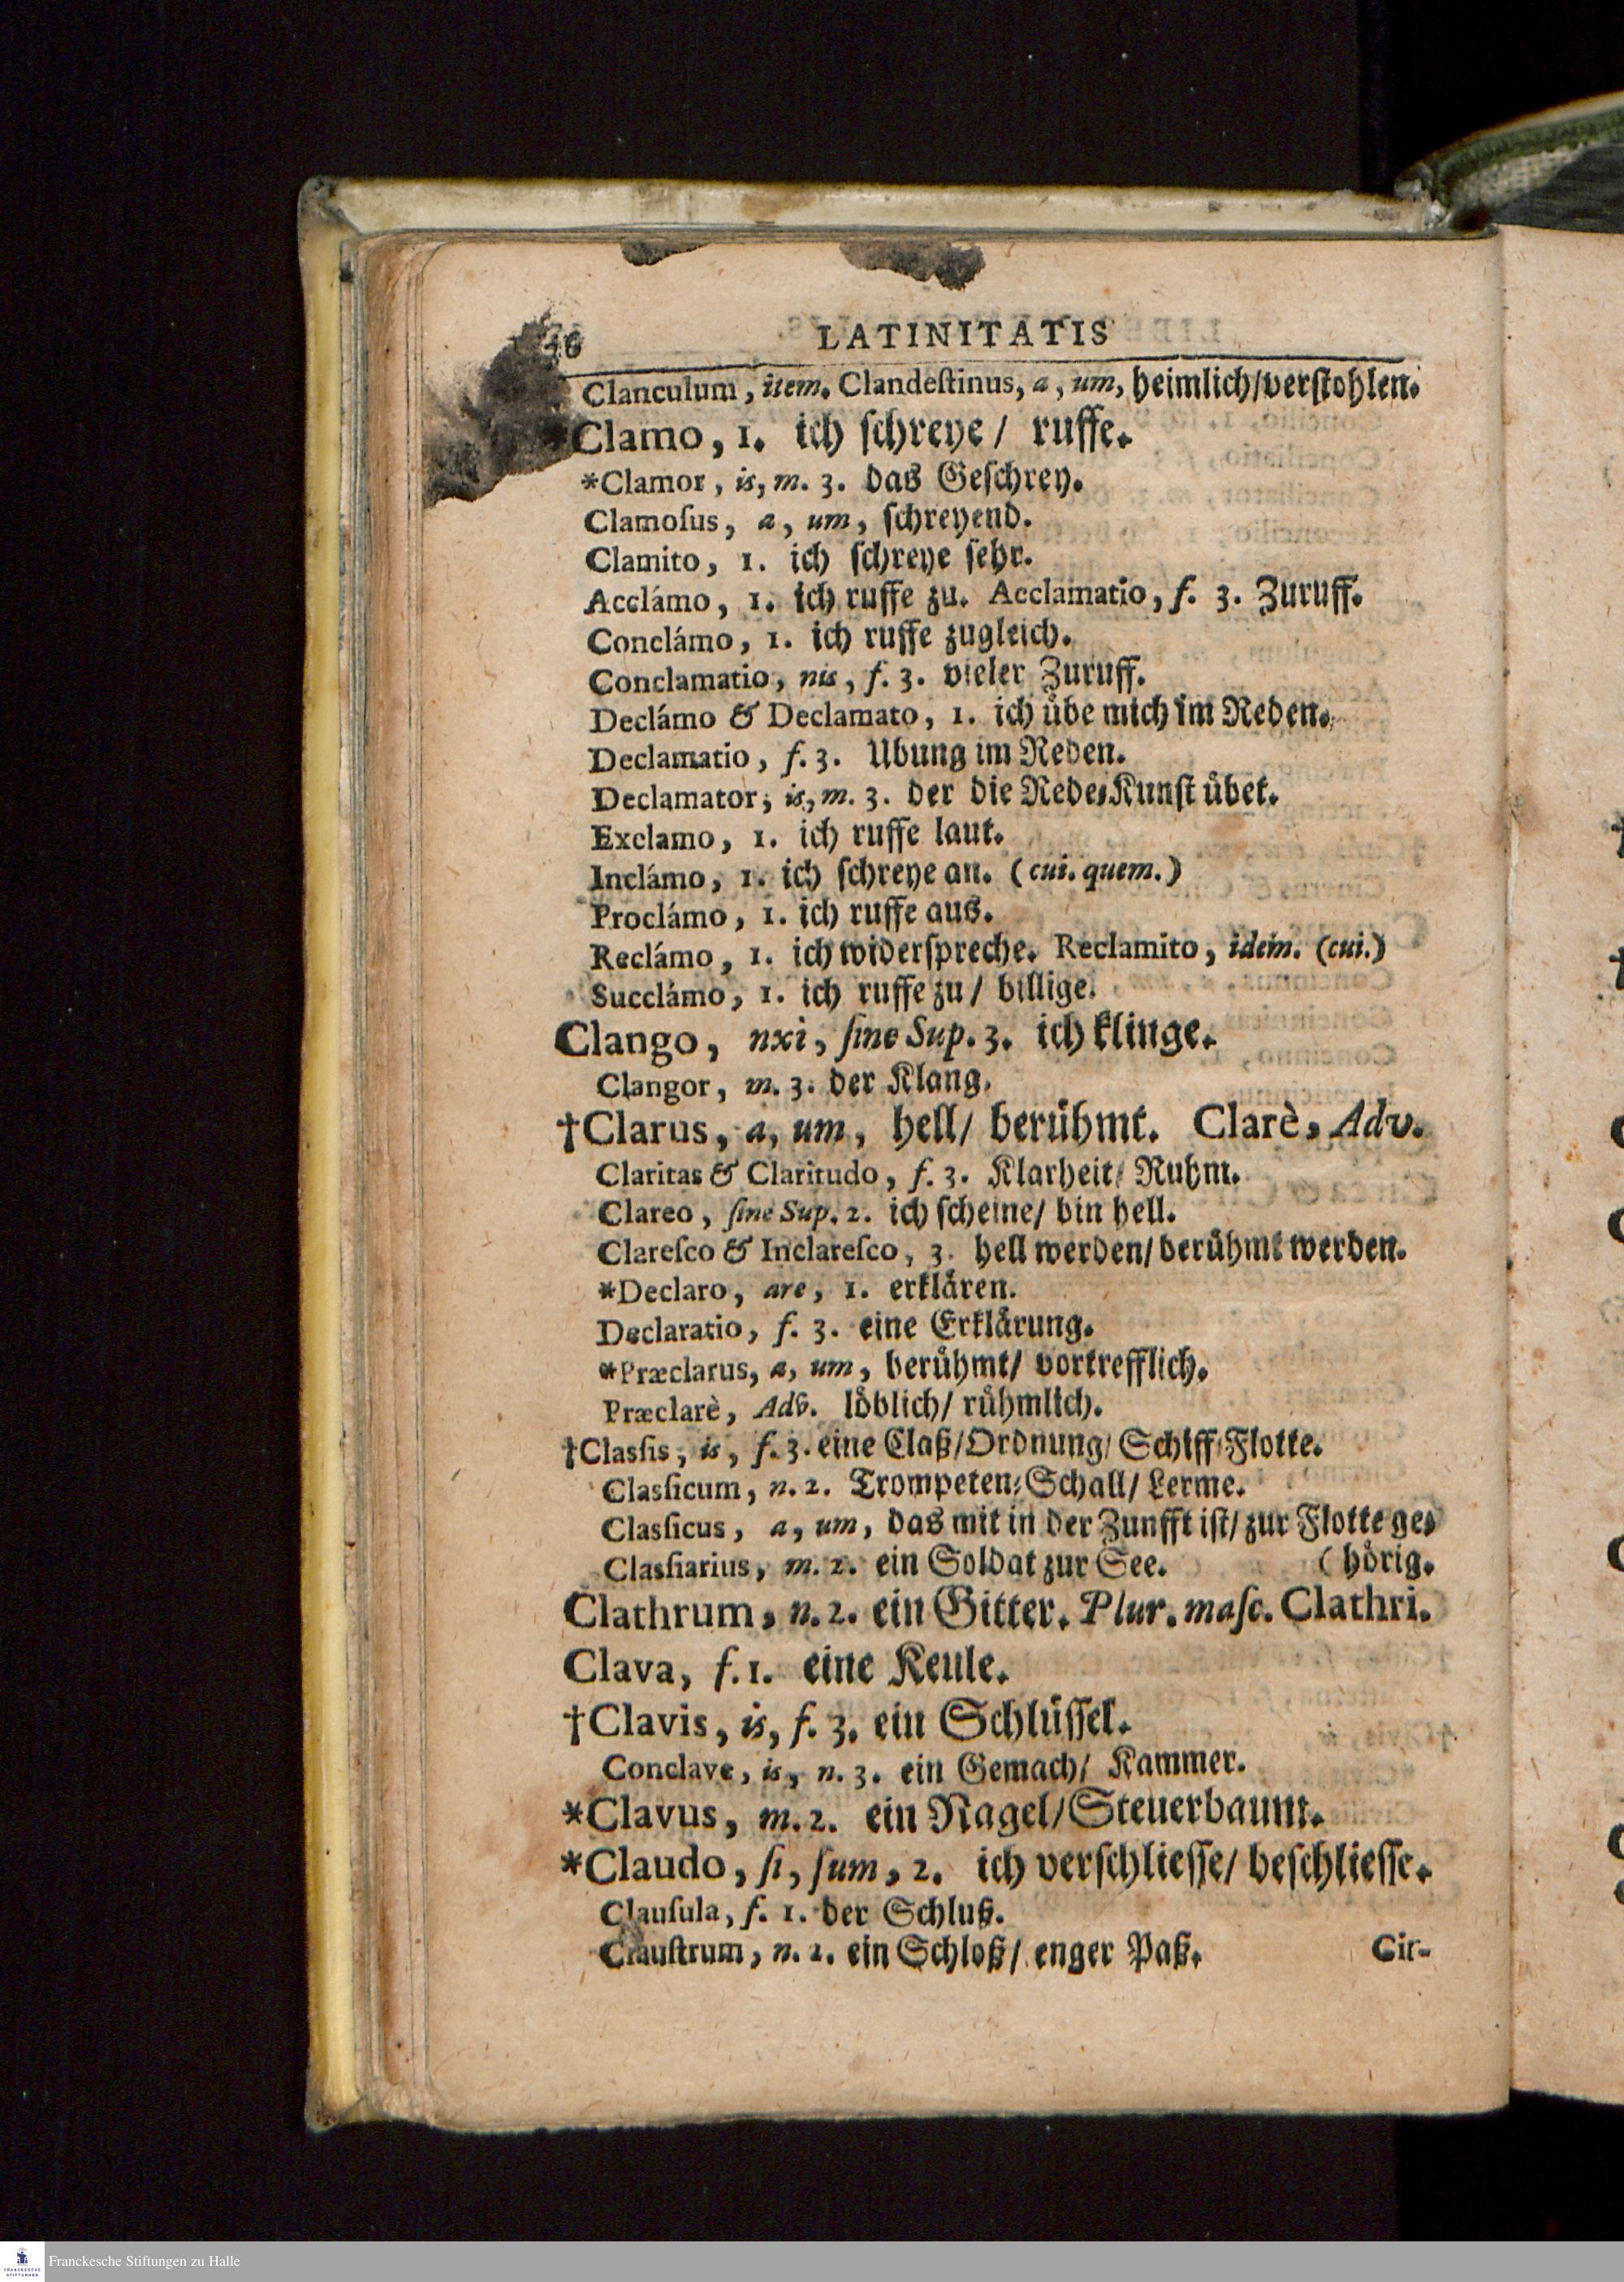 46 LATINITATIS
Clanculum, item. Clandeſtinus, a, um, heimlich/verſtohlen.
Clamo, 1. ich ſchreye/ ruffe.
*Clamor, is, m. 3. das Geſchrey.
Clamoſus, a, um, ſchreyend.
Clamito, 1. ich ſchreye ſehr.
Acclámo, 1. ich ruffe zu. Acclamatio, f. 3. Zuruff.
Conclámo, 1. ich ruffe zugleich.
Conclamatio, nis, f. 3. vieler Zuruff.
Declámo & Declamato, 1. ich uͤbe mich im Reden.
Declamatio, f. 3. Ubung im Reden.
Declamator, is, m. 3. der die Rede⸗Kunſt uͤbet.
Exclamo, 1. ich ruffe laut.
Inclámo, 1. ich ſchreye an. (cui. quem.)
Proclámo, 1. ich ruffe aus.
Reclámo, 1. ich widerſpreche. Reclamito, idem. (cui.)
Succlámo, 1. ich ruffe zu/ billige.
Clango, nxi, ſine Sup. 3. ich klinge.
Clangor, m. 3. der Klang.
†Clarus, a, um, hell/ beruͤhmt. Clarè, Adv.
Claritas & Claritudo, f. 3. Klarheit/ Ruhm.
Clareo, ſine Sup. 2. ich ſcheine/ bin hell.
Clareſco & Inclareſco, 3. hell werden/ beruͤhmt werden.
*Declaro, are, 1. erklaͤren.
Declaratio, f. 3. eine Erklaͤrung.
*Præclarus, a, um, beruͤhmt/ vortrefflich.
Præclarè, Adv. loͤblich/ ruͤhmlich.
†Claſſis, is, f. 3. eine Claß/Ordnung/ Schiff⸗Flotte.
Claſſicum, n. 2. Trompeten⸗Schall/ Lerme.
Claſſicus, a, um, das mit in der Zunfft iſt/ zur Flotte ge⸗
Claſſiarius, m. 2. ein Soldat zur See. (hoͤrig.
Clathrum, n. 2. ein Gitter. Plur. maſc. Clathri.
Clava, f. 1. eine Keule.
†Clavis, is, f. 3. ein Schluͤſſel.
Conclave, is, n. 3. ein Gemach/ Kammer.
*Clavus, m. 2. ein Nagel/Steuerbaum.
*Claudo, ſi, ſum, 2. ich verſchlieſſe/ beſchlieſſe.
Clauſula, f. 1. der Schluß.
Clauſtrum, n. 2. ein Schloß/ enger Paß. Cir-
Franckesche Stiftungen zu Halle
FRANCKESCHE
STIFTUNGEN